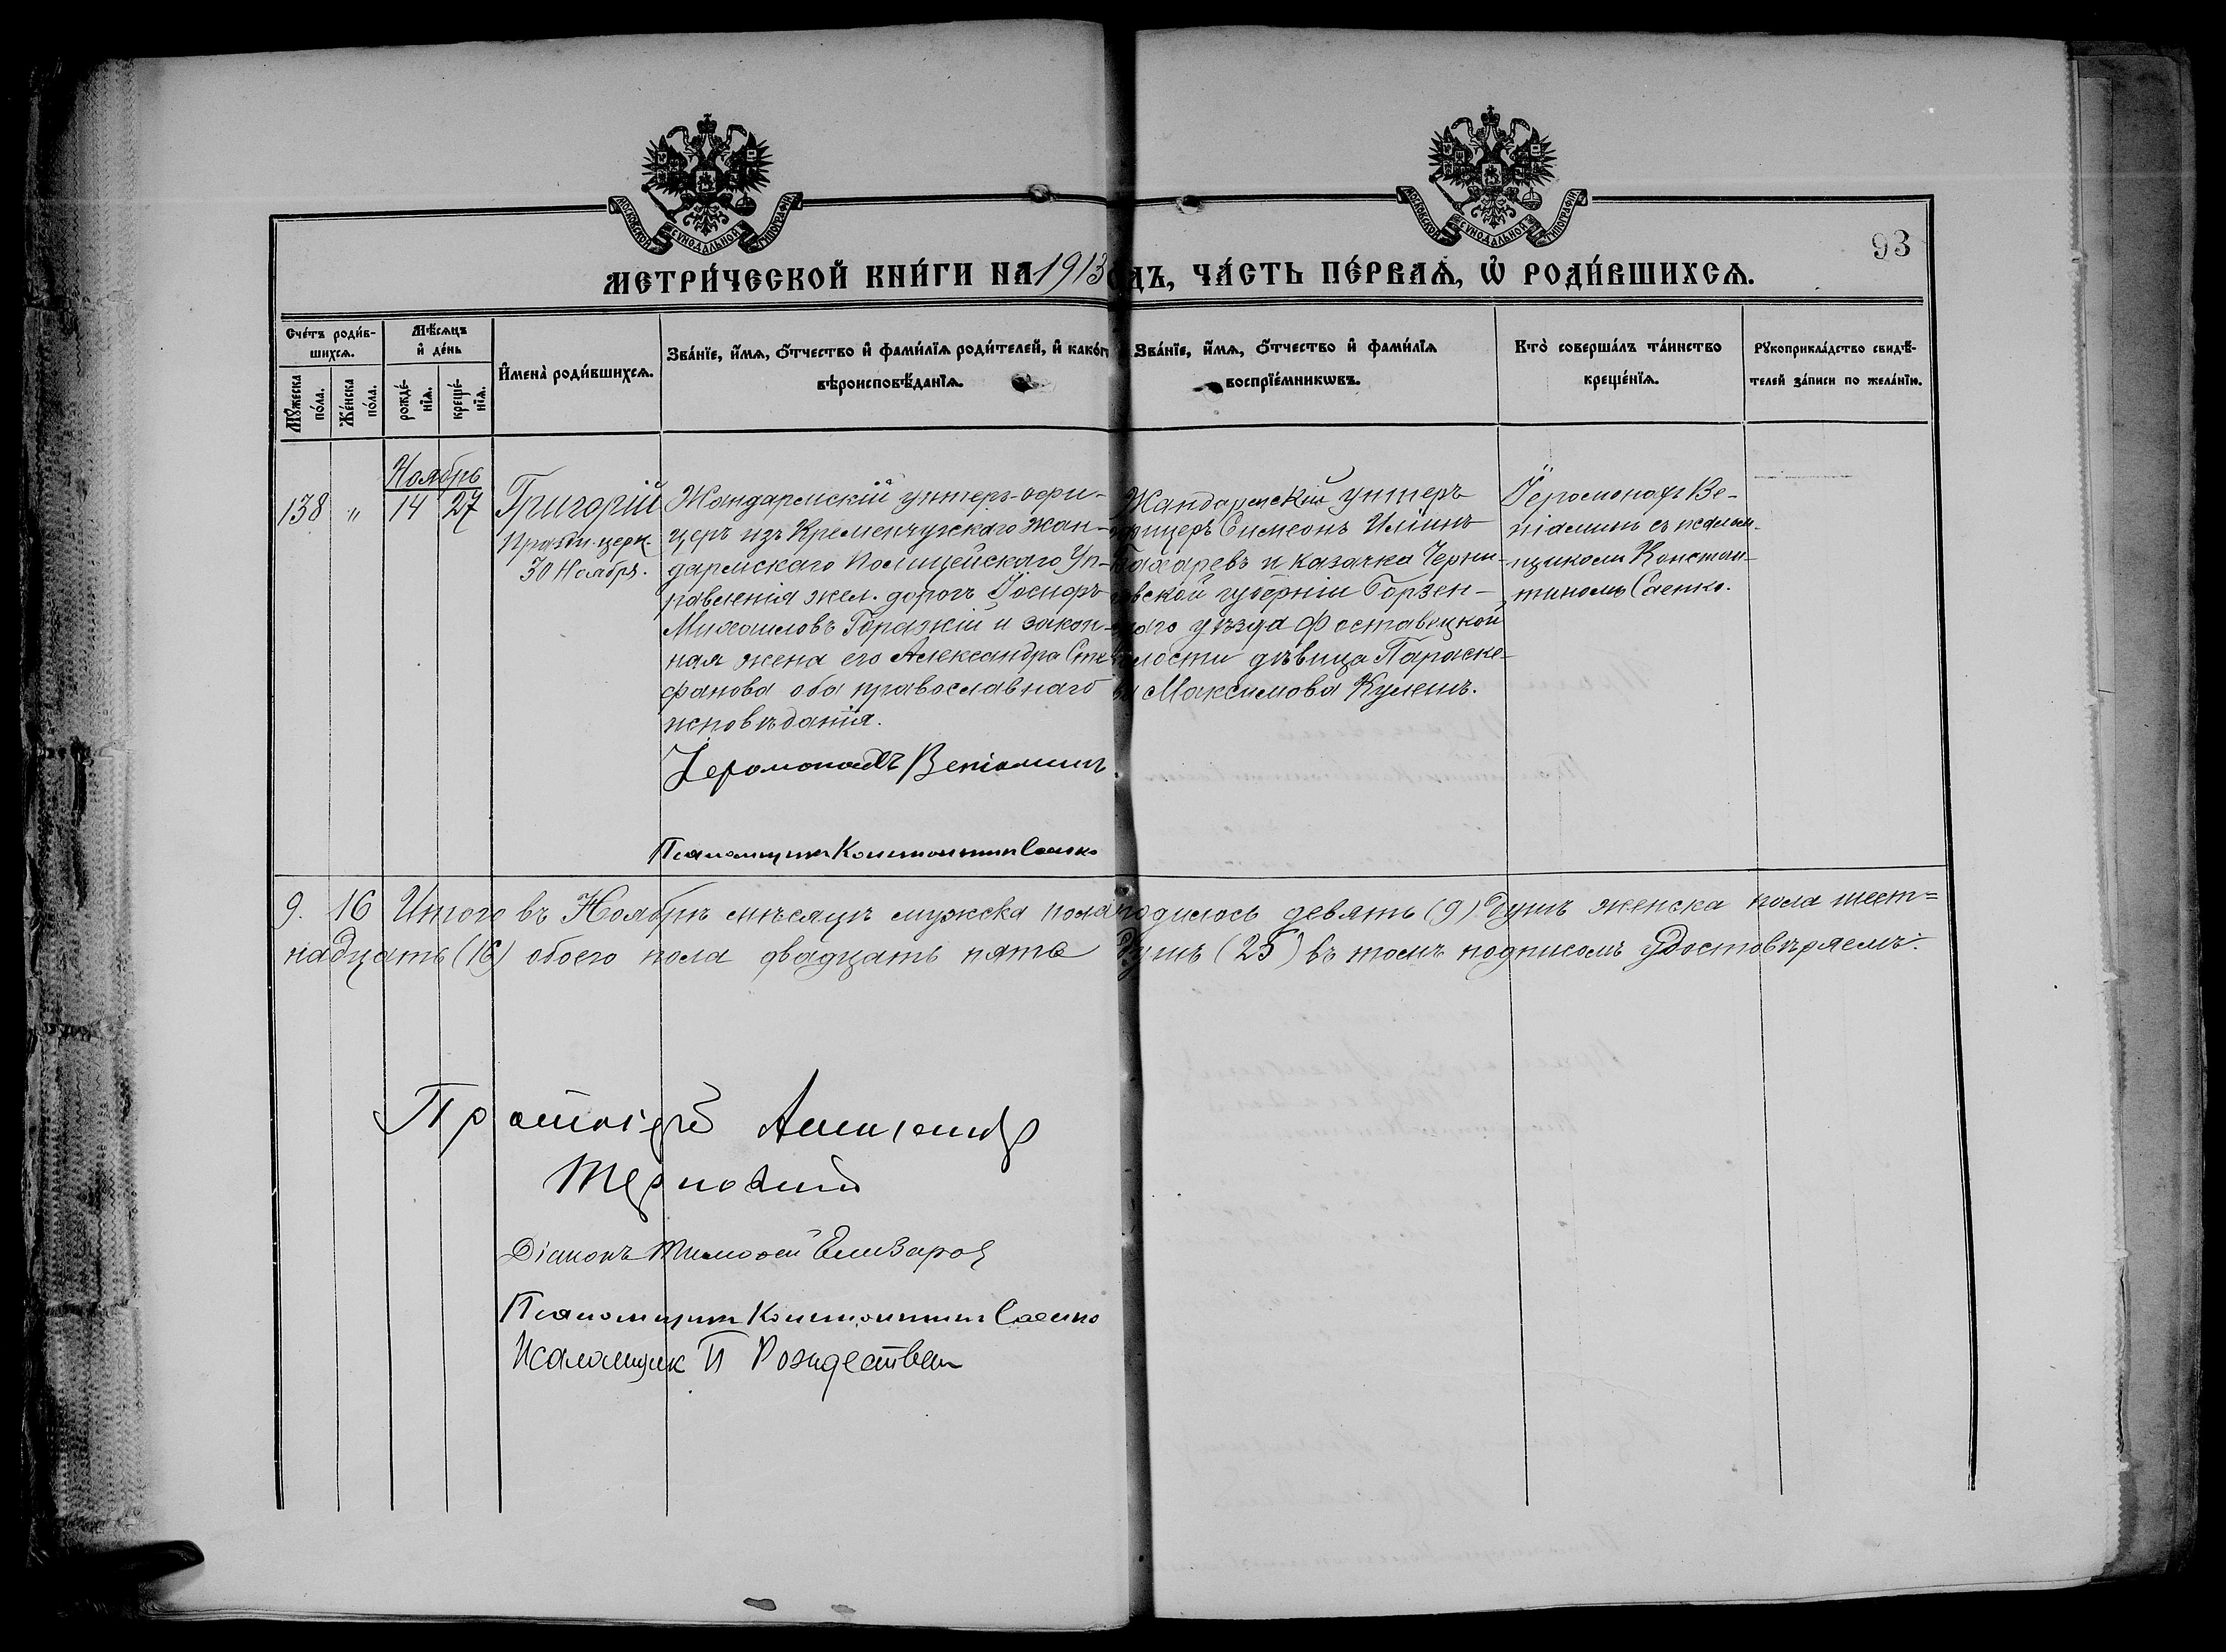 МОСКОВСКОЙ СѴНОДАЛЬНОЙ ТИПОГРАФІИ
МОСКОВСКОЙ СѴНОДАЛЬНОЙ ТИПОГРАФІИ
93
МЕТРИ́ЧЕСКОЙ КНИ́ГИ НА 1913 ОДЪ, ЧА́СТЬ ПЕ́РВАѦ, Ѡ҆ РОДИ́ВШИХСѦ.
Сче́тъ роди́в-
шихсѧ.
Мꙋ́жеска по́ла.
Же́нска по́ла.
Мѣ́сѧцъ
и҆ де́нь
рожде́-
нїѧ.
креще́-
нїѧ.
И҆мена̀ роди́вшихсѧ.
Зва́нїе, и҆́мѧ, ѻ҆́тчество и҆ фами́лїѧ роди́телей, и҆ како́г
вѣроисповѣ́данїѧ.
Зва́нїе, и҆́мѧ, ѻ҆́тчество и҆ фами́лїѧ
воспрїе́мникѡвъ.
Кто̀ соверша́лъ та́инство
креще́нїѧ.
Рꙋкоприкла́дство свидѣ́-
телей за́писи по жела́нїю.
Ноябрь
138 " 14 27
Григорій
Праздн. церк.
30 Ноября.
Жандармскій унтеръ-офи-
церъ изъ Кременчугскаго Жан-
дармскаго Полицейскаго Уп-
равленія жел. дорогъ
Михаиловъ и закон-
ная жена его Александра Сте-
фанова оба православнаго
исповѣданія.
Іеромонахъ Веніаминъ
Псаломщикъ Константинъ Саенко
Жандармскій унтеръ
фицеръ Симеонъ Ильинъ
Бахаревъ и казачка Черни-
овской губерніи Борзен-
наго уѣзда Фоставецкой
волости дѣвица Параске-
ва Максимова Кулешъ.
Іеромонахъ Ве-
ніаминъ съ псалом-
щикомъ Констан-
тиномъ Саенко.
9. 16 Итого въ Ноябрѣ мѣсяцѣ мужска пола родилось девять (9) душъ женска пола шест=
надцать (16) обоего пола двадцать пять душъ (25) въ томъ подписомъ удостовѣряемъ.
Протоіерей Александр
Терновскій
Діаконъ Тимофей Елизаров
Псаломщикъ Константинъ Саенко
Псаломщик П Рождествен